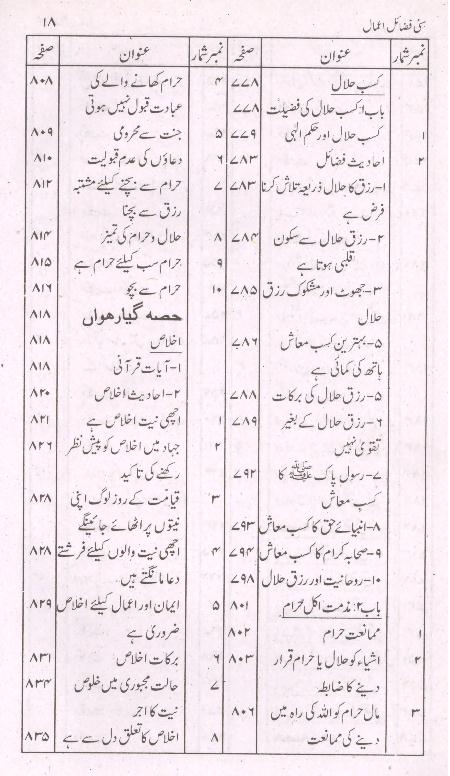 سنی فضائل اعمال ۱۸
نمبرشمار عنوان صفحہ
کسب حلال ۷۷۸
باب۱: کسب حلال کی فضیلت ۷۷۸
۱ کسب حلال اور حکم الٰہی ۷۷۹
۲ احادیث فضائل ۷۸۳
۱-رزق کا حلال ذریعہ تلاش کرنا ۷۸۳
فرض ہے
۲-رزق حلال سے سکون ۷۸۴
قلبی ہوتا ہے
۳-جھوٹ اور مشکوک رزق ۷۸۵
حلال
۵-بہترین کسب معاش ۷۸۶
ہاتھ کی کمائی ہے
۵-رزق حلال کی برکات ۷۸۸
۶-رزق حلال کے بغیر ۷۸۹
تقویٰ نہیں
۷-رسول پاک ﷺ کا ۷۹۲
کسب معاش
۸-انبیائے حق کا کسب معاش ۷۹۳
۹-صحابہ کرام کا کسب معاش ۷۹۴
۱۰-روحانیت اور رزق حلال ۷۹۸
باب۲: مذمت اکل حرام ۸۰۱
۱ ممانعت حرام ۸۰۲
۲ اشیاء کو حلال یا حرام قرار ۸۰۳
دینے کا ضابطہ
۳ مال حرام کو اللہ کی راہ میں ۸۰۶
دینے کی ممانعت
نمبرشمار عنوان صفحہ
۴ حرام کھانے والے کی ۸۰۸
عبادت قبول نہیں ہوتی
۵ جنت سے محرومی ۸۰۹
۶ دعاؤں کی عدم قبولیت ۸۱۰
۷ حرام سے بچنے کیلئے مشتبہ ۸۱۲
رزق سے بچنا
۸ حلال و حرام کی تمیز ۸۱۴
۹ حرام سب کیلئے حرام ہے ۸۱۵
۱۰ حرام سے بچو ۸۱۶
حصہ گیارھواں ۸۱۸
اخلاص ۸۱۸
۱-آیات قرآنی ۸۱۸
۲-احادیث اخلاص ۸۲۰
۱ اچھی نیت اخلاص ہے ۸۲۱
۲ جہاد میں اخلاص کو پیش نظر ۸۲۶
رکھنے کی تاکید
۳ قیامت کے روز لوگ اپنی ۸۲۸
نیتوں پر اٹھائے جائینگے
۴ اچھی نیت والوں کیلئے فرشتے ۸۲۸
دعا مانگتے ہیں.
۵ ایمان اور اعمال کیلئے اخلاص ۸۲۹
ضروری ہے
۶ برکات اخلاص ۸۳۱
۷ حالت مجبوری میں خلوص ۸۳۴
نیت کا اجر
۸ اخلاص کا تعلق دل سے ہے ۸۳۵